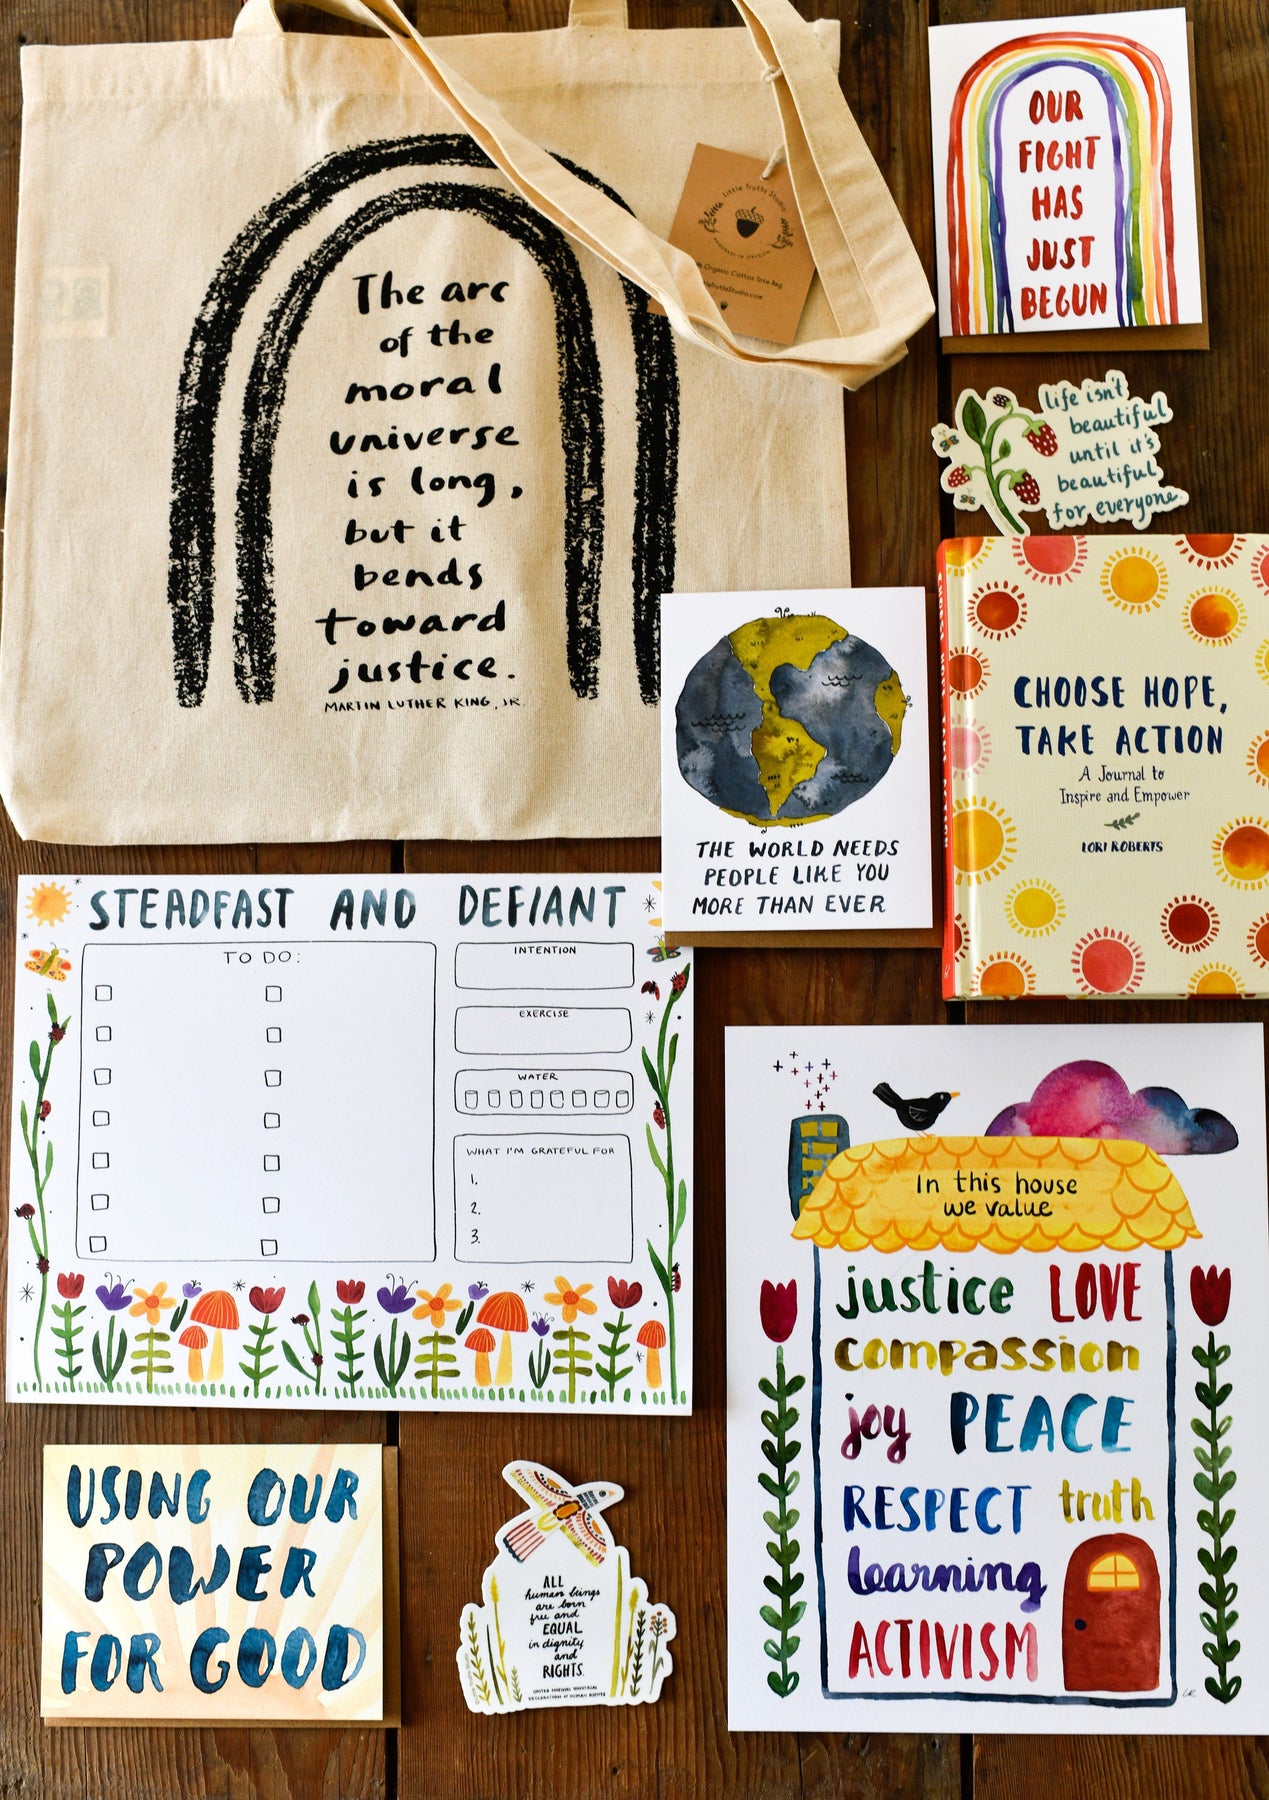 The arc
of the
moral
universe
is long,
but it
bends
toward
justice.
MARTIN LUTHER KING, JR.
Little Truths Studio
HANDMADE IN OREGON
Organic Cotton Tote Bag
TruthsStudio.com
OUR
FIGHT
HAS
JUST
BEGUN
life isn't
beautiful
until it's
beautiful
for everyone.
THE WORLD NEEDS
PEOPLE LIKE YOU
MORE THAN EVER
CHOOSE HOPE,
TAKE ACTION
A Journal to
Inspire and Empower
LORI ROBERTS
STEADFAST AND DEFIANT
TO DO:
INTENTION
EXERCISE
WATER
WHAT I'M GRATEFUL FOR
1.
2.
3.
In this house
we value
justice LOVE
compassion
joy PEACE
RESPECT truth
learning
ACTIVISM
LR
USING OUR
POWER
FOR GOOD
ALL
human beings
are born
free and
EQUAL
in dignity
and
RIGHTS.
UNITED NATIONS UNIVERSAL
DECLARATION OF HUMAN RIGHTS